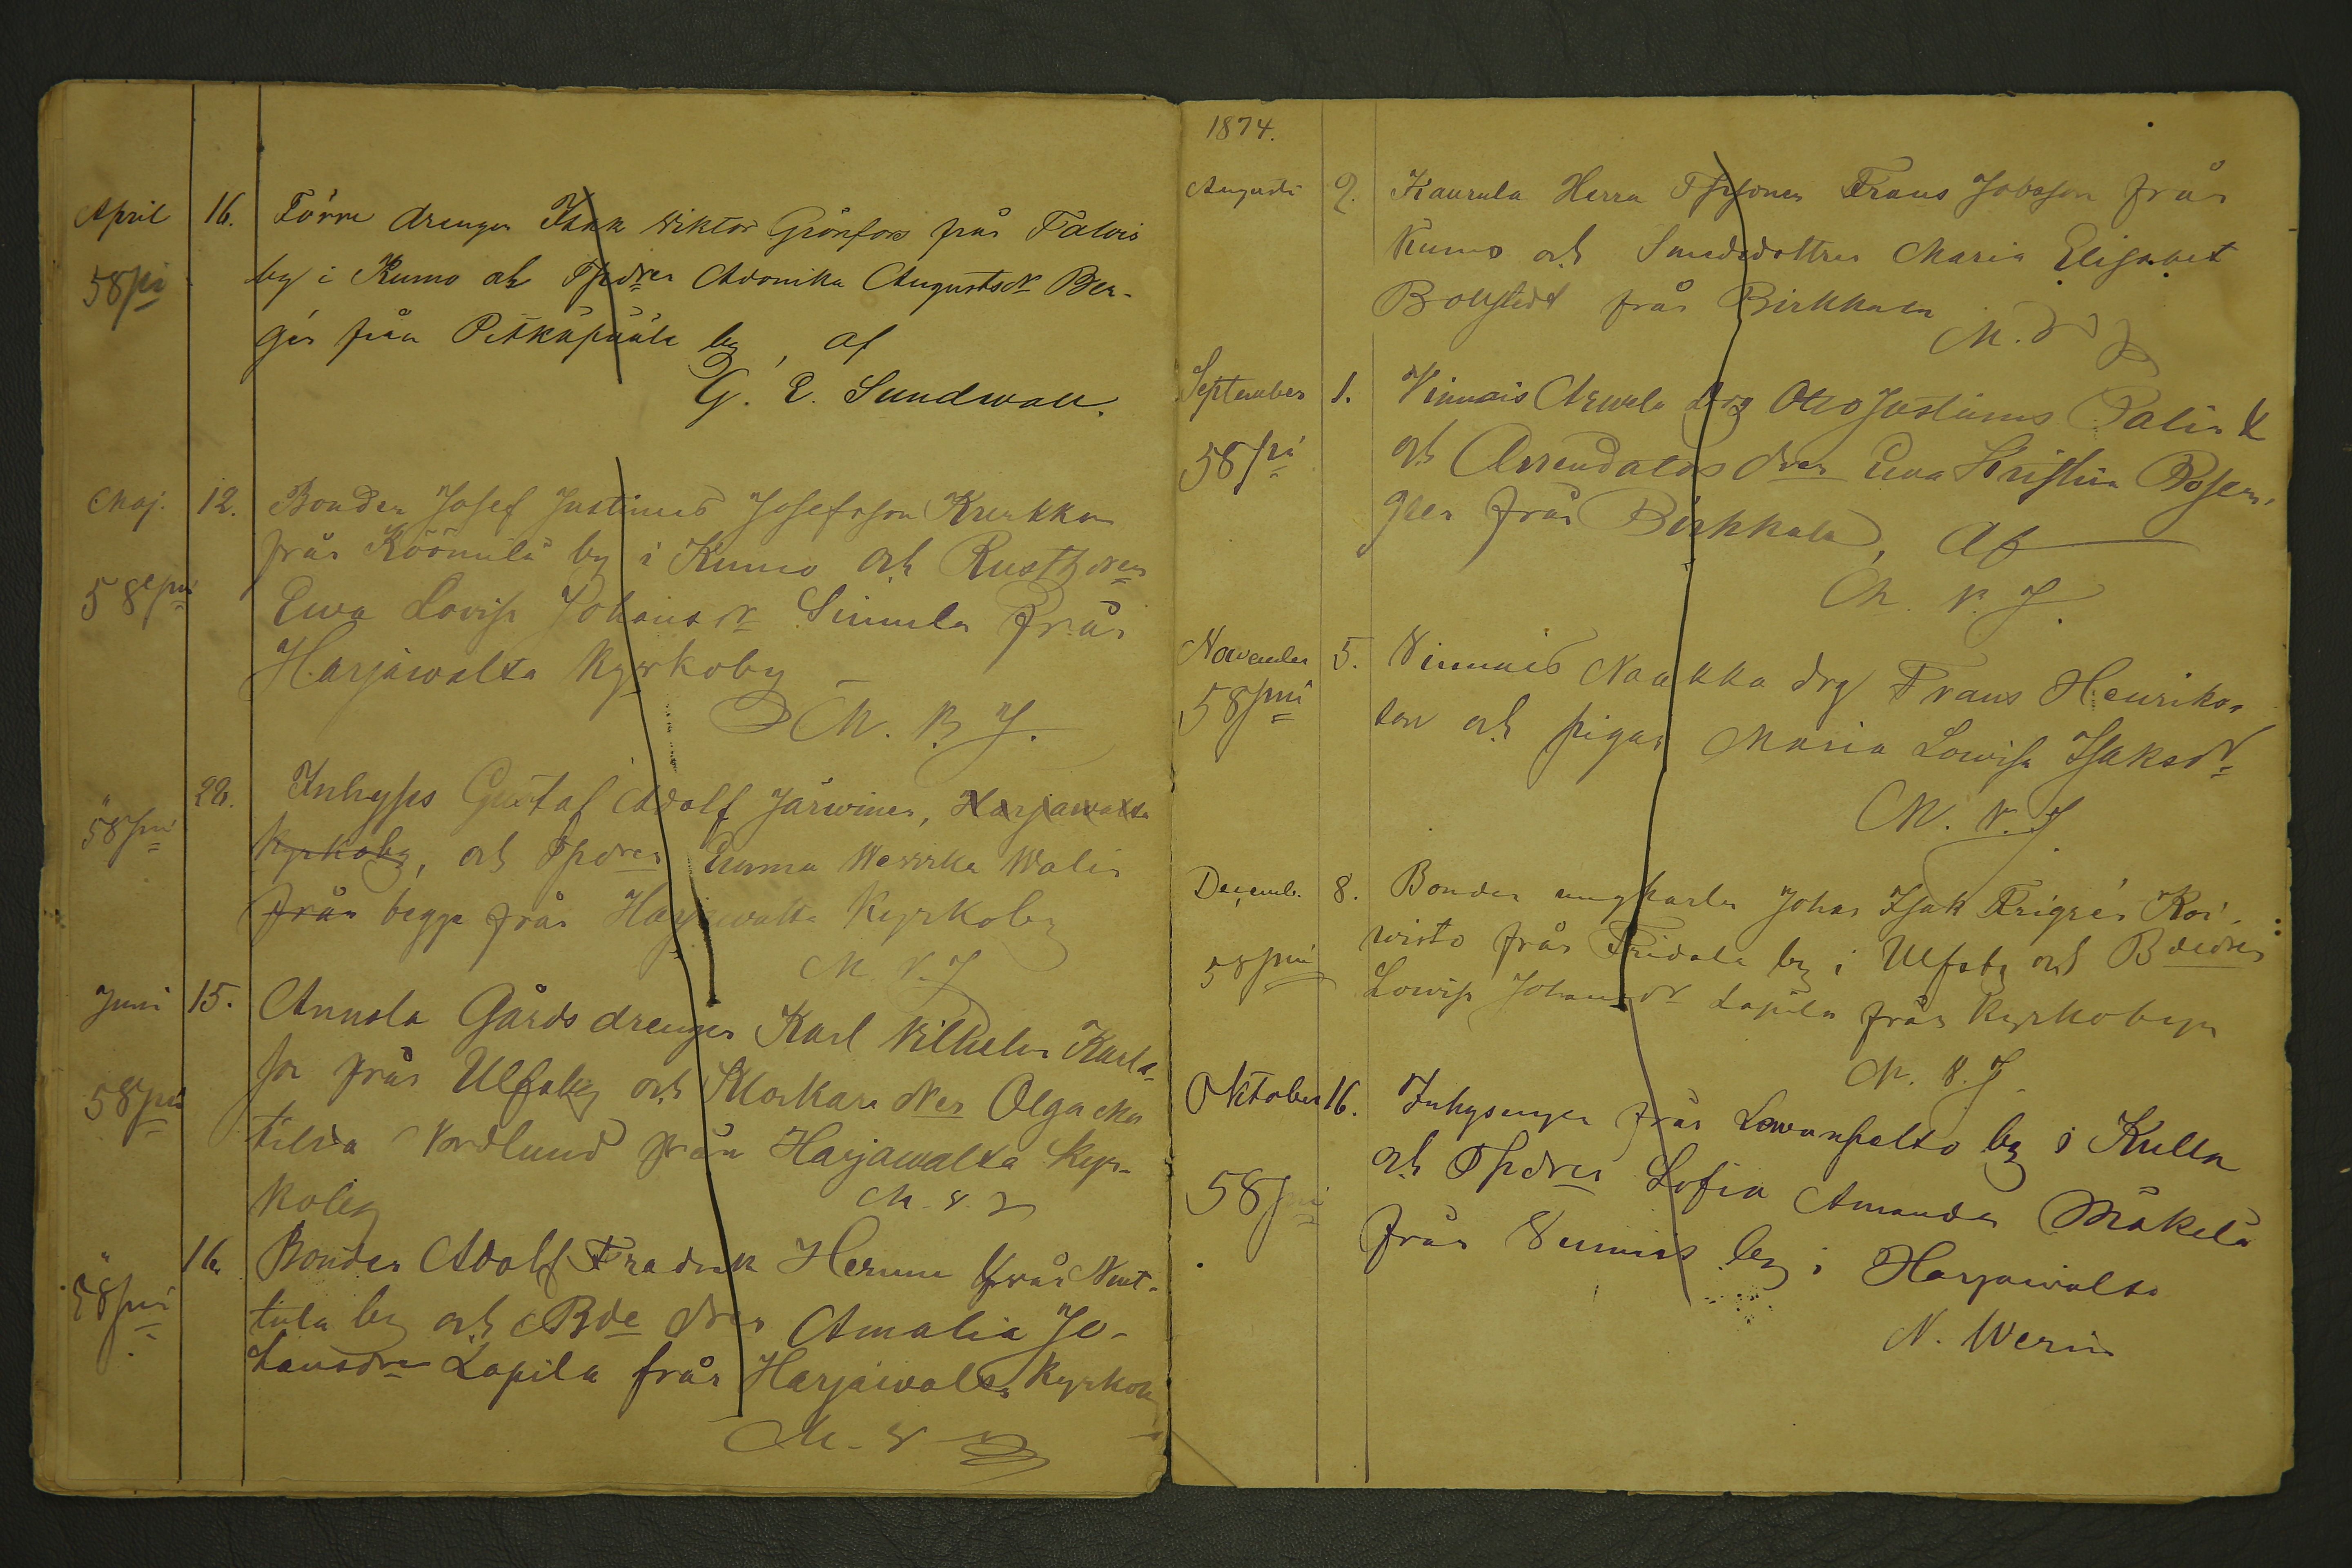 April 16. Förre drengen Isak Wiktor Grönfors från Talvis
58 pi by i Kumo och Tpdren Adomika Augustsdr Ber-
gér från Pitkäpäälä by, af
G. E. Sundwall.
Maj. 12. Bonden Josef Justinus Josefsson Kurkka
från Köömilä by i Kumo och Rusth dren
58 pni Ewa Lovisa Johansdr Simula från
Harjawalta Kyrkoby
M. V. J.
" 22. Inhyses Gustaf Adolf Järwinen, Harjawalta
58 pni Kyrkoby, och Tpdren Emma Walin
från begge från Harjawalta Kyrkoby
M. V. J
Juni 15. Annola Gårds drengen Karl Vilhelm Karls-
son från Ulfsby och dren Olga Ma
58 pni tilda Nordlund från Harjawalta Kyr-
koby M. V. J
" 16. Bonden Adolf Fredrik Hernu från Nut-
58 pni tula by och Bde dren Amalia Jo-
hansdr Lapila från Harjawalta Kyrkoby
M. V
1874.
Augusti 2. Kaurula Herra Tpsonen Frans Jobsson från
Kumo och Smedsdottren Maria Elisabet
Bollstedt från Birkkala
M. V J
September 1. Vinnais Arwela drg Otto Justinus Palin
58 pi och Arrendators dren Ewa Kristina Rosen-
gren från Birkkala, af
M. V. J.
November 5. Vinnais Naukka drg Frans Henriks-
58 pni son och pigan Maria Lowisa Isaksdr
M. V. J
Decemb. 8. Bonden ungkarlen Johan Isak Frigrén Koi-
wisto från Fridala by i Ulfsby och Bdedren
58 pni Lowisa Johansdr Lapila från Kyrkobyn
M. V. J
Oktober 16. Inhysungen från Lewanpelto by i Kulla
och Tpdren Sofia Amanda Mäkelä
58 pni från Vinnais by i Harjawalta
N. Werin